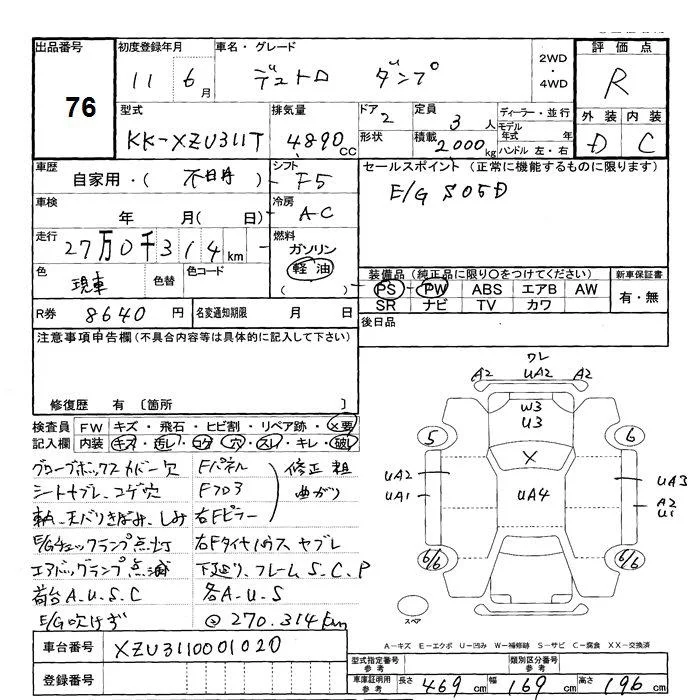 出品番号
76
初度登録年月
11 6月
車名・グレード
デュトロ ダンプ
2WD・4WD
評価点
R
外装 内装
D C
型式
KK-XZU311T
排気量
4890cc
ドア 2
形状
定員 3人
積載 2000kg
ディーラー・並行
モデル年式 年
ハンドル 左・右
車歴
自家用・( 不日月 )
シフト F5
セールスポイント (正常に機能するものに限ります)
E/G S05D
車検 年 月( 日)
冷房 A-C
走行
27万0千314km
燃料
ガソリン
軽油
( )
色 現車
色替
色コード
装備品 (純正品に限り○をつけてください)
PS PW ABS エアB AW
SR ナビ TV カワ
新車保証書
有・無
R券 8640円
名変通知期限 月 日
後日品
注意事項申告欄(不具合内容等は具体的に記入して下さい)
修復歴 有 〔箇所 〕
検査員記入欄
FW キズ・飛石・ヒビ割・リペア跡・×要
内装 キズ・汚レ・コゲ・穴・スレ・キレ・破レ
グローブボックスカバー欠
Fパネル
修正 粗
シートヤブレ、コゲ穴
Fフロア
曲がり
天バリきばみ、しみ
右Fピラー
E/Gチェックランプ点灯
右Fタイヤハウス ヤブレ
エアバッグランプ点滅
下廻り、フレームS.C.P
荷台A.U.S.C
各A.U.S
E/G吹けず
@270.314km
ワレ
A2 UA2 A2
W3
U3
5 6
X
UA2
UA1
UA4
UA3
A2
U1
6/6 6/6
スペア
A-キズ E-エクボ U-凹み W-補修跡 S-サビ C-腐食 XX-交換済
車台番号
XZU3110001020
登録番号
型式指定番号 参考
類別区分番号 参考
車庫証明用 参考
長さ 469cm 幅 169cm 高さ 196cm